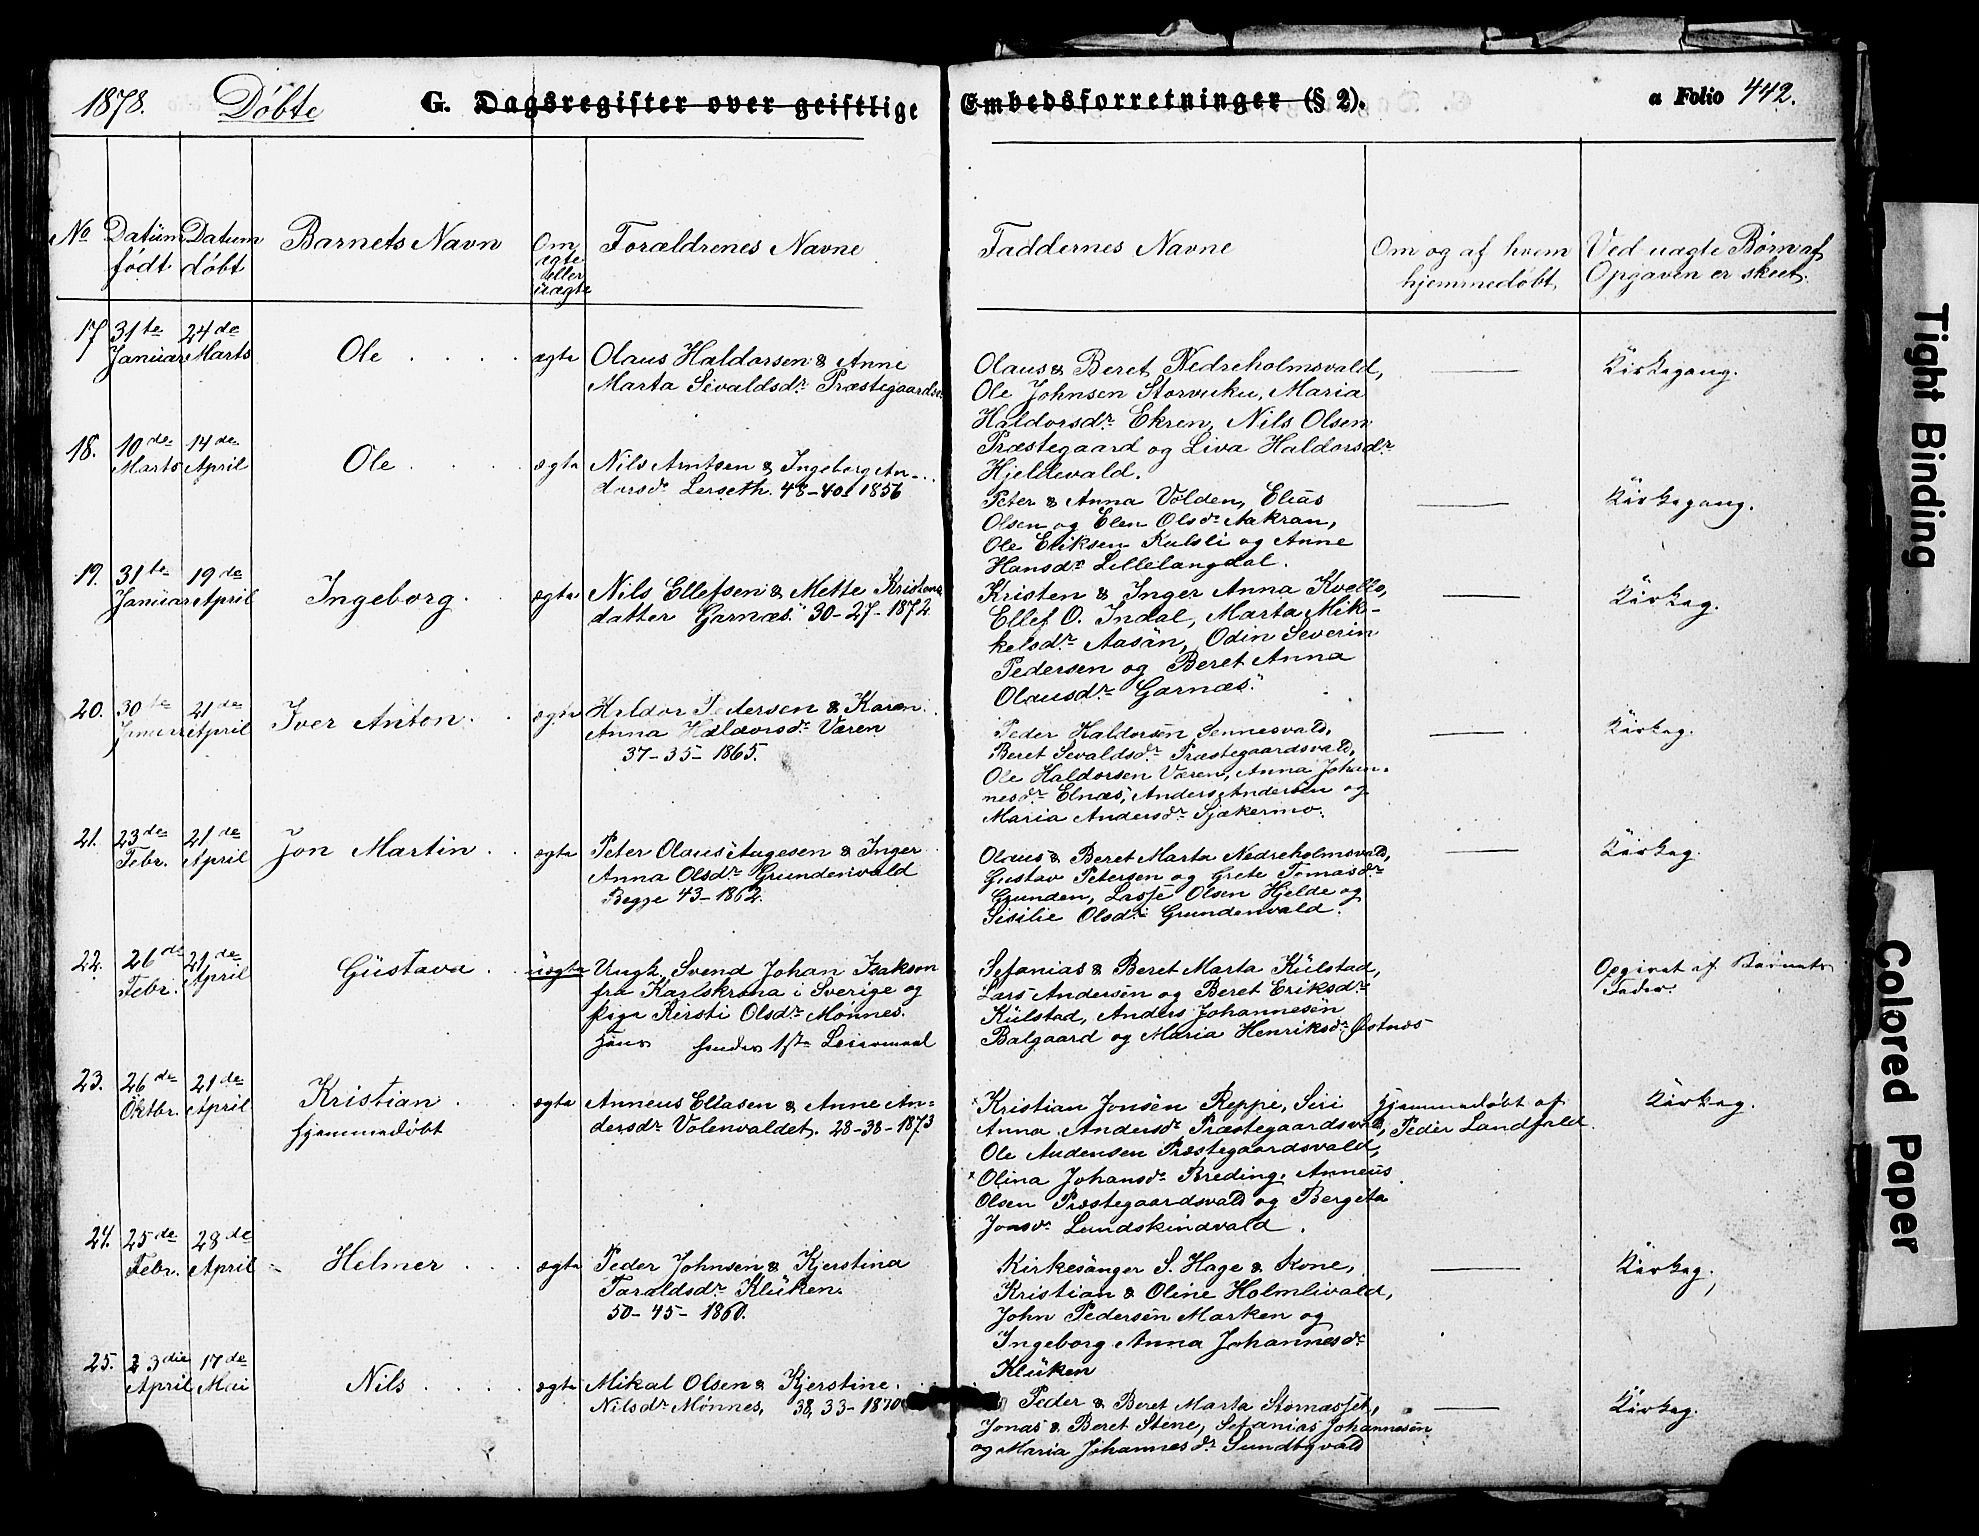 1878. Døbte G. Dagsregister over geistlige Embedsforretninger (§ 2). a Folio 442.
No
Datum født
Datum døbt
Barnets Navn
Om ægte eller uægte
Forældrenes Navne
Faddernes Navne
Om og af hvem hjemmedøbt
Ved uagte Børn af Opgaven er skeet.
17 31te Januar 24de Marts
Ole
ægte
Olaus Haldorsen & Anne
Marta Sivaldsdr. Præstegaardsv
Olaus & Beret Nedreholmsvald,
Ole Johnsen Storvuku, Maria
Haldorsdr. Ekren, Nils Olsen
Præstegaard og Liva Haldorsdr.
Hjeldevald.
Kirkegang.
18. 10de Marts 14de April
Ole
ægte
Nils Arntsen & Ingeborg An-
dorsdr. Lerseth. 48-40- 1856
Peter & Anna Volden, Elias
Olsen og Elen Olsdr. Aakran,
Ole Eriksen Kulsli og Anne
Hansdr. Lillelangdal.
Kirkegang.
19. 31te Januar 19de April
Ingeborg.
ægte
Nils Ellefsen & Mette Kristens
datter Garnæs. 30-27-1872
Kristen & Inger Anna Kvello,
Ellef O. Indal, Marta Mik-
kelsdr. Aasan, Odin Severin
Pedersen og Beret Anna
Olausdr. Garnæs.
Kirkeg.
20. 30te Januar 21de April
Iver Anton.
ægte
Haldor Pedersen & Karen
Anna Haldorsdr. Væren
37-35-1865.
Peder Haldorsen Sennesvald,
Beret Sevaldsdr. Præstegaardsvald,
Ole Haldorsen Væren, Anna Johan-
nesdr. Elnæs, Anders Andersen og
Maria Andersdr. Sjækermo.
Kirkeg.
21. 23de Febr. 21de April
Jon Martin
ægte
Peter Olaus Aagesen & Inger
Anna Olsdr. Grundenvald
Begge 43-1862.
Olaus & Beret Marta Nedreholmsvald,
Gustav Petersen og Grete Tomasdr.
Grunden, Lasse Olsen Hjelde og
Sisilie Olsdr. Grundenvald.
Kirkeg.
22. 26de Febr. 21de April
Gustava
uægte
Ungk. Svend Johan Isakson
fra Karlskrona i Sverige og
pige Kersti Olsdr. Mønnes.
Hans hendes 1ste Leiermaal
Sefanias & Beret Marta Kulstad,
Lars Andersen og Beret Eriksdr.
Kulstad, Anders Johannesen
Balgaard og Maria Henriksdr. Østnæs
Opgivet af Barnets
Fader.
23. 26de Oktbr. 21de April
Kristian
hjemmedøbt
ægte
Anneus Ellasen & Anne An-
dersdr. Volenvaldet. 28-38-1873
Kristian Jonsen Reppe, Siri
Anna Andersdr. Præstegaardsvald,
Ole Audensen Præstegaardsvald,
Olina Johansdr. Breding, Anneus
Olsen Præstegaardsvald og Bergita
Jonsdr. Lundskindvald.
Hjemmedøbt af
Peder Landfald.
Kirkeg.
24. 25de Febr. 28de April
Helmer
ægte
Peder Johnsen & Kjerstina
Taraldsdr. Kluken.
50-45-1860.
Kirkesanger S. Hage & Kone,
Kristian & Oline Holmlivald,
John Pedersen Marken og
Ingeborg Anna Johannesdr.
Kluken
Kirkeg.
25. 23die April 17de Mai
Nils
ægte
Mikal Olsen & Kjerstine
Nilsdr. Mønnes, 38, 33-1870
Peder & Beret Marta
Jonas & Beret Stene, Sefanias Johannesen
og Maria Johannesdr. Sundbyvald
Kirkeg.
Tight Binding
Colored Paper